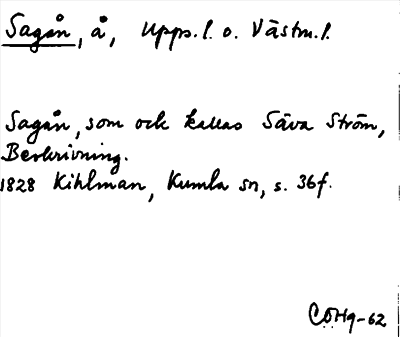 Sagån, å, Upps. l. o. Västm. l.
Sagån, som och kallas Säva Ström,
Beskrivning.
1828 Kihlman, Kumla sn, s. 36f.
CÖHg-62